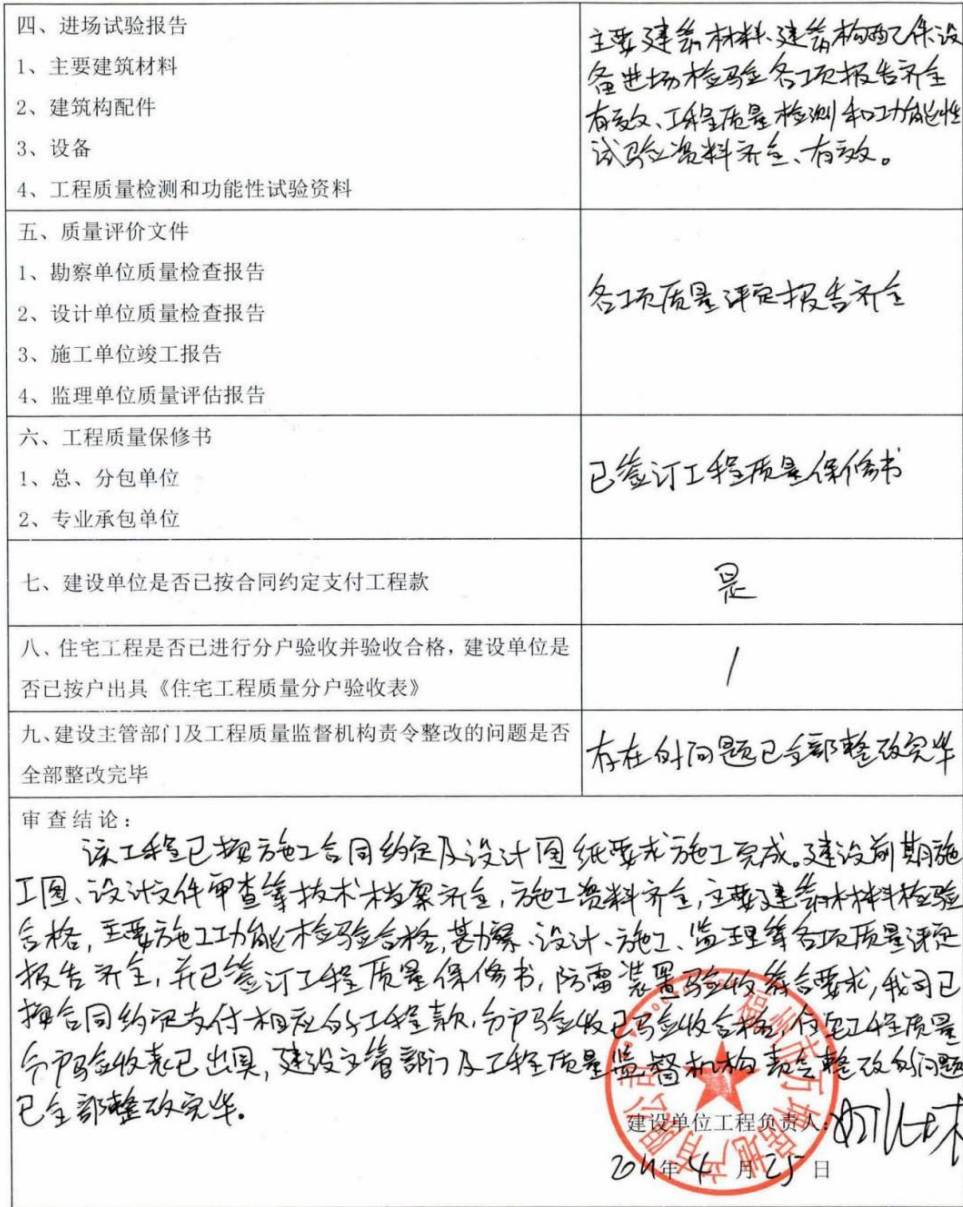 四、进场试验报告
1、主要建筑材料
2、建筑构配件
3、设备
4、工程质量检测和功能性试验资料
主要建筑材料、建筑构配件设
备进场检验各项报告齐全
有效、工程质量检测和功能性
试验资料齐全、有效。
五、质量评价文件
1、勘察单位质量检查报告
2、设计单位质量检查报告
3、施工单位竣工报告
4、监理单位质量评估报告
各项质量评定报告齐全
六、工程质量保修书
1、总、分包单位
2、专业承包单位
已签订工程质量保修书
七、建设单位是否已按合同约定支付工程款
是
八、住宅工程是否已进行分户验收并验收合格，建设单位是
否已按户出具《住宅工程质量分户验收表》
/
九、建设主管部门及工程质量监督机构责令整改的问题是否
全部整改完毕
存在的问题已全部整改完毕
审查结论：
该工程已按施工合同约定及设计图纸要求施工完成。建设前期施
工图、设计文件审查等技术档案齐全，施工资料齐全，主要建筑材料检验
合格，主要施工功能检验合格，勘察、设计、施工、监理等各项质量评定
报告齐全，并已签订工程质量保修书，防雷装置验收符合要求，我司已
按合同约定支付相应的工程款，分户验收已验收合格，住宅工程质量
分户验收表已出具，建设主管部门及工程质量监督机构责令整改的问题
已全部整改完毕。
福州市万坤房地产有限公司
建设单位工程负责人：
年4月25日